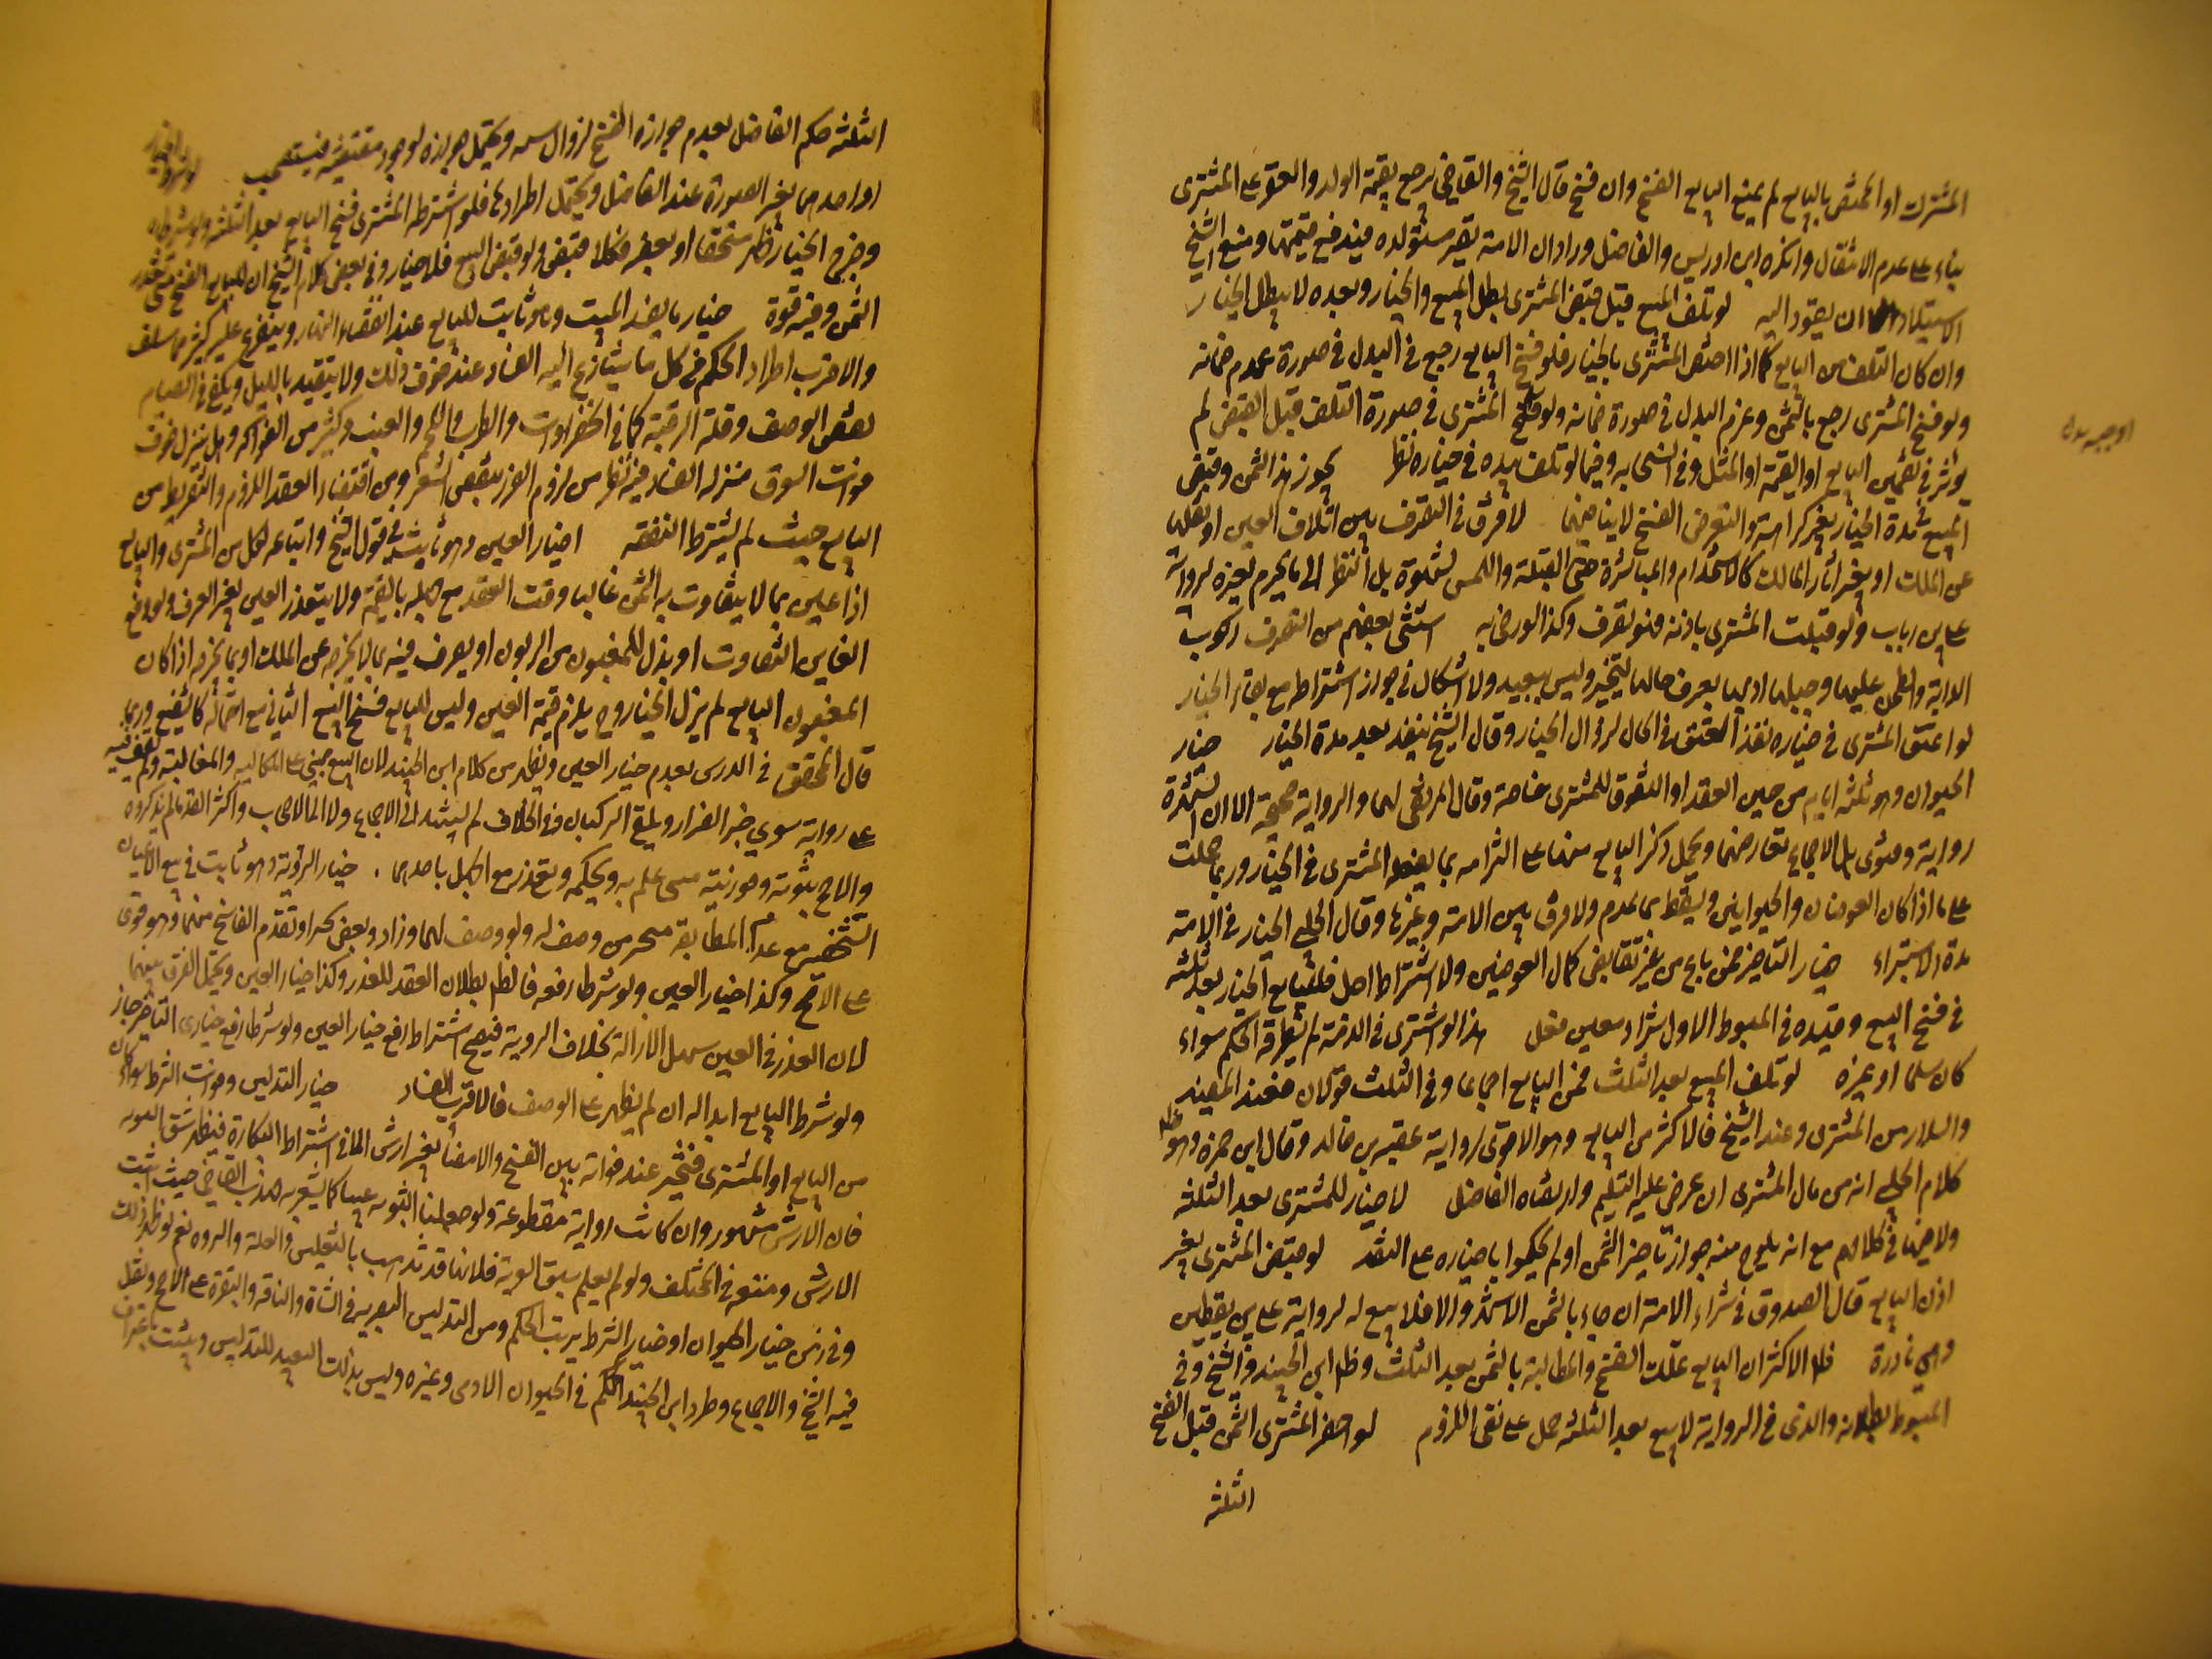 المشترك او المختص بالبايع لم يمنع البايع الفسخ وان فسخ قال الشيخ والقاضى يرجع بقيمة الولد والعقر على المشترى
بناء على عدم الانتقال وانكره ابن ادريس والفاضل وزاد ان الامة تصير مستولده فيدفع قيمتها ومنع الشيخ
الاستيلاد الا ان يعود اليه لو تلف المبيع قبل قبض المشترى بطل البيع والخيار وبعده لا يبطل الخيار
وان كان التلف من البايع كما اذا اختص المشترى بالخيار فلو فسخ البايع رجع فى البدل فى صورة عدم ضمانه
ولو فسخ المشترى رجع بالثمن وغرم البدل فى صورة ضمانه ولو فسخ المشترى فى صورة التلف قبل القبض لم
يؤثر فى تضمين البايع او القيمة او المثل وفى انسحابه وفيما لو تلف بيده فى خياره نظر يجوز نقد الثمن وقبض
المبيع فى مدة الخيار بغير كراهة والتعرض الفسخ لا ينافيهما لا فرق فى التصرف بين اتلاف العين او نقلها
عن الملك او بغير اثار المالك كالاستخدام والمباشرة حتى القبلة واللمس لشهوة بل النظر الى ما يحرم لغيره لرواية
على بن رباب ولو قبلت المشترى باذنه فهو تصرف وكذا لو رضى به استثنى بعضهم من التصرف ركوب
الدابة والطحن عليها وحلبها اذ بها يعرف حالها ليتخير وليس ببعيد ولا اشكال فى جواز اشتراطه مع بقاء الخيار
لو اعتق المشترى فى خياره نفذ العتق فى الحال لزوال الخيار وقال الشيخ ينفذ بعد مدة الخيار خيار
الحيوان وهو ثلثة ايام من حين العقد او التفرق للمشترى خاصة وقال المرتضى لهما والرواية صحيحة الا ان الشهرة
رواية وفتوى بل الاجماع تعارضها ويحمل ذكر البايع منها على التزامه بما يفعله المشترى فى الخيار وربما حملت
على ما اذا كان العوضان والحيوانين ويسقط بما تقدم ولا فرق بين الامة وغيرها وقال الحلبى الخيار فى الامة
مدة الاستبراء خيار التاخير فمن باع من غير تقابض كمال العوضين ولا اشتراط اجل فللبايع الخيار بعد ثلثه
فى فسخ البيع وقيده فى المبسوط الاول بشراء معين فعلى هذا لو اشترى فى الذمة لم يتطرقه الحكم سواء
كان سلما او غيره لو تلف المبيع بعد الثلث فمن البايع اجماعا وفى الثلث قولان فعند المفيد
والسلار من المشترى وعند الشيخ فالاكثر من البايع وهو الاقوى لرواية عقبة بن خالد وقال ابن حمزة وهو ظاهر
كلام الحلبى انه من مال المشترى ان عرض عليه التسليم وارتضاه الفاضل لا خيار للمشترى بعد الثلثة
ولا فيها فى كلامهم مع انه يلوح منه جواز تاخير الثمن او لم يحكموا باجباره على النقد لو قبض المشترى بغير
اذن البايع قال الصدوق فى شراء الامة ان جاء بالثمن الى شهر والا فلا بيع له لرواية على بن يقطين
وهى نادرة ظاهر الاكثر ان البايع يملك الفسخ والمطالبة بالثمن بعد الثلث وظاهر ابن الجنيد والشيخ وفى
المبسوط بطلانه والذى فى الرواية لا بيع بعد الثلثة حمل على نفى اللزوم لو احضر المشترى الثمن قبل الفسخ
الثلثه
الثلثه حكم الفاضل بعدم جوازه الفسخ لزوال سببه ويحتمل جوازه لوجود مقتضيه فيستصحب
او احدهما بغير الصورة عند الفاضل ويحتمل اطرادها فلو اشترط المشترى فسخ البايع بعد الثلثه
وخرج الخيار فظهر مستحقا او بعضه فكلا قبض ولو قبض المبيع فلا خيار وفى بعض كلام الشيخ ان للبايع الفسخ متى تعذر
الثمن وفيه قوة خيار ما يفسد المبيت وهو ثابت للبايع عند انقضاء النهار ويتفرع عليه كثير مما سلف
والاقرب اطراد الحكم فى كل ما يتسارع اليه الفساد عند خوف ذلك ولا يتقيد بالليل ويكفى فى الفساد
نقص الوصف وقلة الرغبة كما فى الخضراوات والرطب واللحم والعنب وكثير من الفواكه وهل ينزل خوف
فوات السوق منزلة الفساد فيه نظر من لزوم الضرر بنقص السعر ومن اقتضاء العقد اللزوم والتفريط من
البايع حيث لم يشترط النقد خيار الغبن وهو ثابت فى قول الشيخ واتباعه لكل من المشترى والبايع
اذا غبن بما لا يتفاوت به الثمن غالبا وقت العقد مع جهله بالقيمة ولا يتعذر الغبن بغير العرف ولو دفع
الغابن التفاوت او بذل للمغبون من الزبون او يصرف فيه بما لا يخرجه عن الملك او بما يخرجه اذا كان
المغبون البايع لم يزل الخيار وح يلزم قيمة العين وليس للبايع فسخ البيع الثانى مع احتماله كالشفيع وربما
قال المحقق فى الدرس بعدم خيار الغبن ويظهر من كلام ابن الجنيد لان البيع مبنى على المكايسة والمغالبة ولم نقف فيه
على رواية سوى خبر الضرار وتلقى الركبان وفى الخلاف لم يسنده الى الاجماع ولا الى الاصحاب واكثر القدما لم يذكروه
والاصح ثبوته وفوريته متى علم به وبحكمه ويعذر مع الجهل باحدهما خيار الرؤية وهو ثابت فى بيع الاعيان
الشخصية مع عدم المطابقة فيتخير من وصف له ولو وصف لهما وزاد ونقص تخيرا وتقدم الفاسخ منهما وهو فورى
على الاصح وكذا خيار الغبن ولو شرطا رفعه فالظاهر بطلان العقد للغرر وكذا خيار الغبن ويحتمل الفرق بينهما
لان الغرر فى الغبن سهل الازالة بخلاف الروية فيصح اشتراط رفع خيار الغبن ولو شرطا رفع خيارى التاخير جاز
ولو شرط البايع ابداله ان لم يظهر على الوصف فالاقرب الفساد خيار التدليس وفوات الشرط سواء كان
من البايع او المشترى فيتخير عند فواته بين الفسخ والامضا بغير ارش الا فى اشتراط البكارة فيظهر سبق الثيوبه
فان الارش مشهور وان كانت رواية مقطوعة ولو جعلنا الثيوبه عيبا كما يشعر به مهذب القاضى حيث اثبت
الارش ومنعه فى المختلف ولو لم يعلم سبق الثيوبة فلانها قد تذهب بالتعنيس والعلة والنزوه نعم لو ظهر ذلك
وفى زمن خيار الحيوان او خيار الشرط يترتب الحكم ومن التدليس التصرية فى الشاة والناقة والبقرة على الاصح ونقل
فيه الشيخ والاجماع وطرد ابن الجنيد الحكم فى الحيوان الادمى وغيره وليس بذلك البعيد للتدليس ويثبت باعتراف